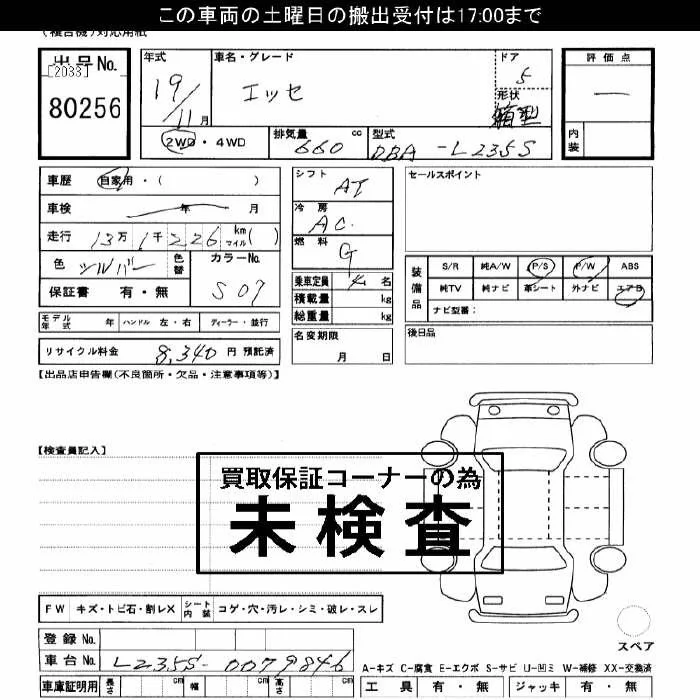 この車両の土曜日の搬出受付は17:00まで
(複合機)対応用紙
出品No.
[2033]
80256
年式
19/11月
車名・グレード
エッセ
ドア
5
形状
箱型
評価点
内装
2WD・4WD
排気量
660 cc
型式
DBA-L235S
車歴 自家用・( )
車検 年 月
走行 13万1千226 km マイル( )
色 シルバー 色替
カラーNo.
S07
保証書 有・無
シフト
AT
冷房
AC.
燃料
G
乗車定員 4 名
積載量 kg
総重量 kg
名変期限
月 日
セールスポイント
装備品
S/R 純A/W P/S P/W ABS
純TV 純ナビ 革シート 外ナビ エアB
ナビ型番:
後日品
モデル年式 年 ハンドル 左・右 ディーラー・並行
リサイクル料金 8,340 円 預託済
【出品店申告欄(不良箇所・欠品・注意事項等)】
【検査員記入】
買取保証コーナーの為
未検査
FW キズ・トビ石・割レX シート内装 コゲ・穴・汚レ・シミ・破レ・スレ
スペア
登録No.
車台No. L235S-0079846
A-キズ C-腐食 E-エクボ S-サビ U-凹ミ W-補修 XX-交換済
車庫証明用 長さ cm 幅 cm 高さ cm
工具 有・無 ジャッキ 有・無